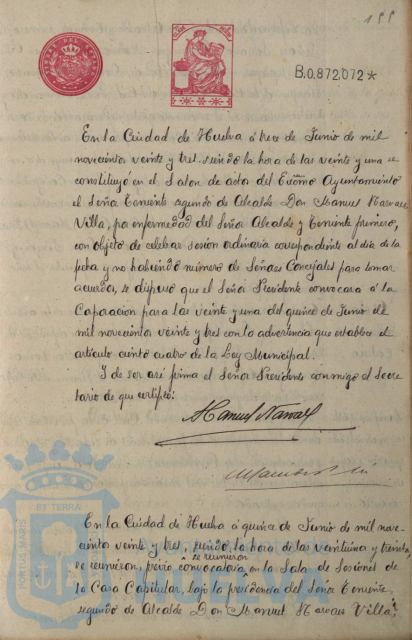 199
B.0.872,072*
En la Ciudad de Huelva á trece de Junio de mil
novecientos veinte y tres, siendo la hora de las veinte y una se
constituyó en el Salon de actos del Excmo Ayuntamiento
el Señor Teniente segundo de Alcalde Don Manuel Narvaez
Villa, por enfermedad del Señor Alcalde y Teniente primero,
con objeto de celebrar sesion ordinaria correspondiente al dia de la
fecha y no habiendo número de Señores Concejales para tomar
acuerdos, se dispuso que el Señor Presidente convocara á la
Corporacion para las veinte y una del quince de Junio de
mil novecientos veinte y tres con la advertencia que establece el
articulo ciento cuatro de la Ley Municipal.
Y de ser asi firma el Señor Presidente conmigo el Secre
tario de que certifico:
Manuel Narvaez
En la Ciudad de Huelva á quince de Junio de mil nove-
cientos veinte y tres, siendo la hora de las veintiuna y treinta,
se reunieron
se reunieron, previa convocatoria en la Sala de Sesiones de
la Casa Capitular, bajo la presidencia del Señor Teniente
segundo de Alcalde Don Manuel Narvaez Villa
PORTUS MARIS
ET TERRAE